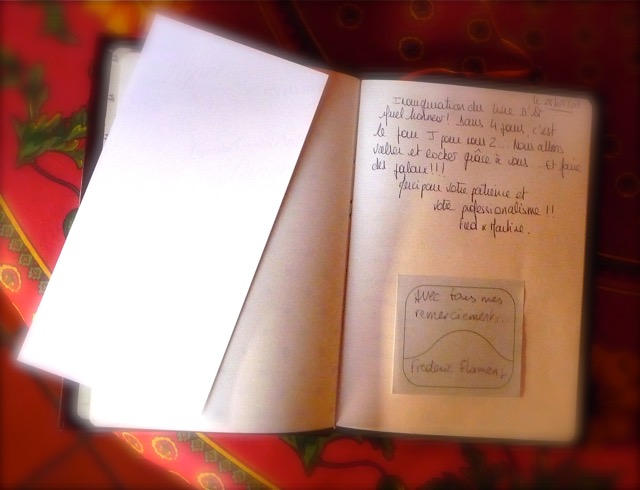 Inauguration du livre d'or
Quel honneur! Dans 4 jours, c'est
le jour J pour nous 2... Nous allons
valser et rocker grâce à vous ... Et faire
des jaloux!!!
Merci pour votre patience et
votre professionnalisme!!
Fred x Martine.
Avec tous mes
remerciements...
Frederic Flamen